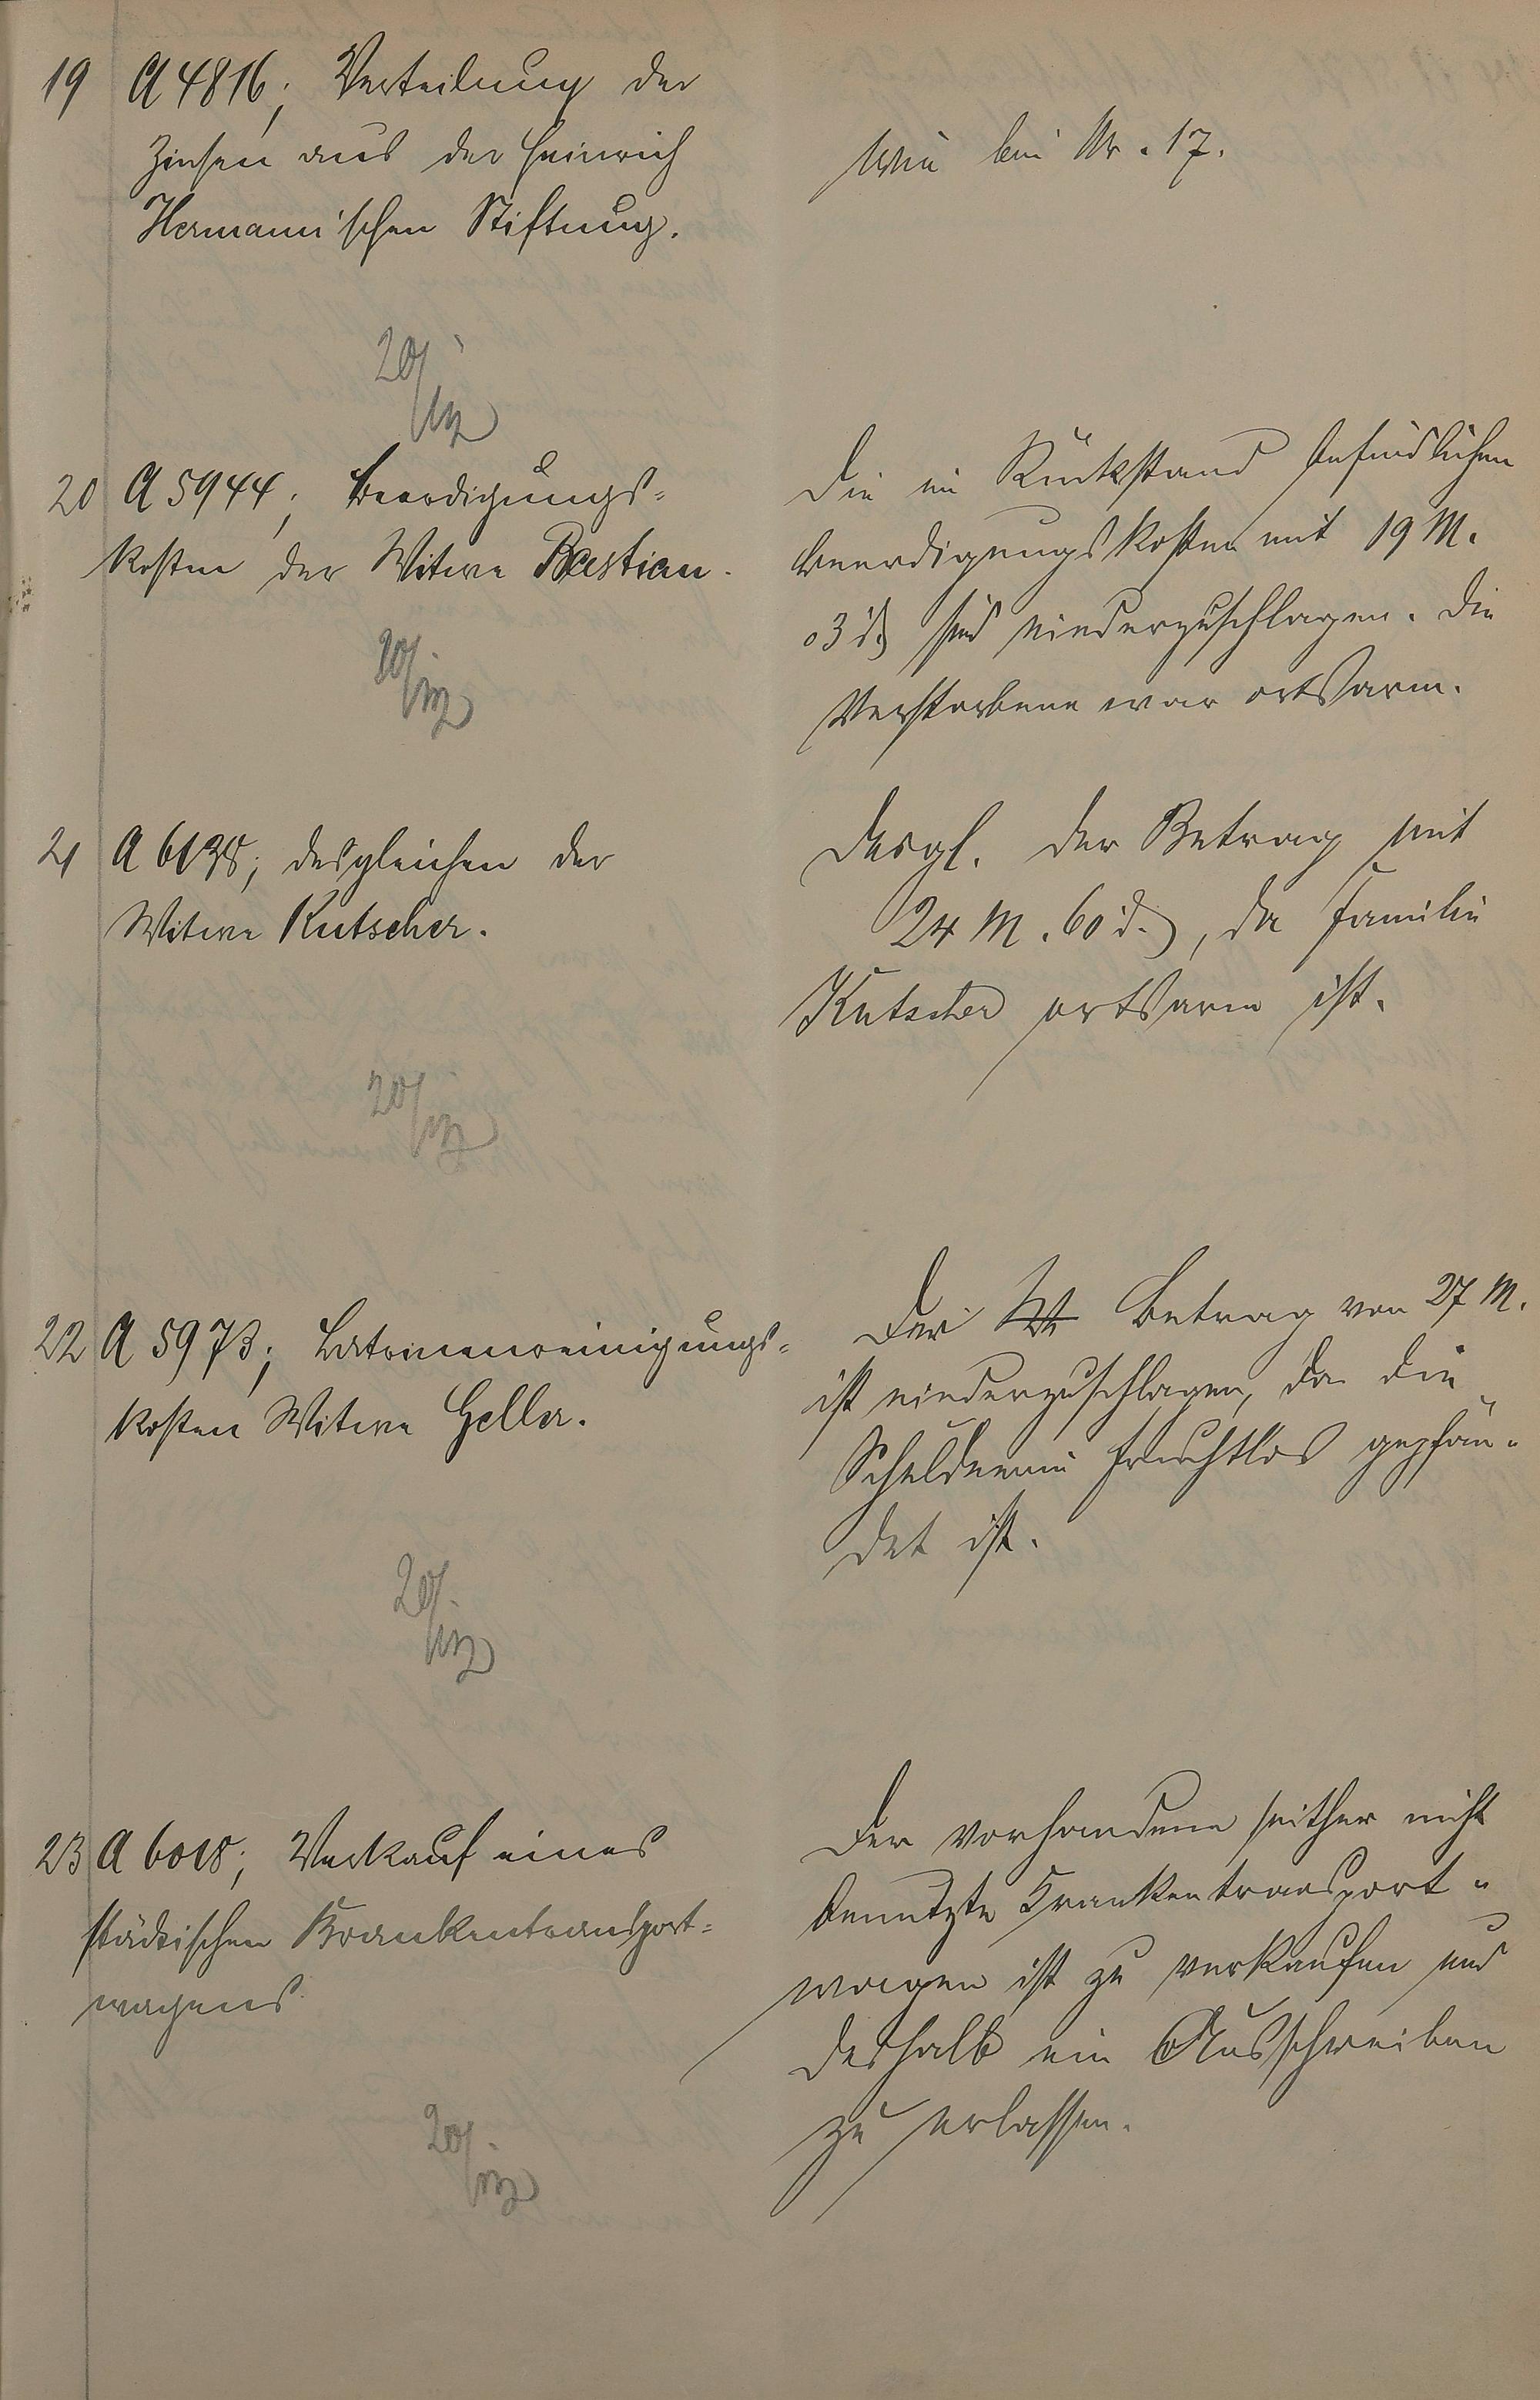 19 A 4816; Verteilung der
Zinsen aus der Heinrich
Hermann'schen Stiftung.
Wie bei Nr. 17.
20/
20 A 5944; Beerdigungs-
kosten der Witwe Bastian.
Die im Rückstand befindlichen
Beerdigungskosten mit 19 M.
03 d. sind niederzuschlagen. Die
Verstorbene war ortsarm.
20/
21 A 6138; desgleichen der
Witwe Kutscher.
Desgl. der Betrag mit
24 M. 60 d., da Familie
Kutscher ortsarm ist.
20/
22 A 5973; Latrinenreinigungs-
kosten Witwe Geller.
Der Betrag von 27 M.
ist niederzuschlagen, da die
Schuldnerin fruchtlos gepfän-
det ist.
20/
23 A 6018; Verkauf eines
städtischen Krankentransport-
wagens.
Der vorhandene seither nicht
benutzte Krankentransport-
wagen ist zu verkaufen und
deshalb ein Ausschreiben
zu erlassen.
20/